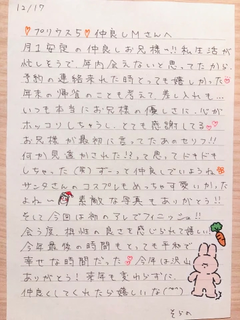 12/17
プリクス5 仲良しMさんへ
月1安定の仲良しお兄様っ!!私生活が
忙しそうで、年内会えないと思ってたから、
予約の連絡来れた時とっても嬉しかった
年末の帰省のことも考えて差し入れも…
いつも本当にお兄様の優しさに、心が
ホッコリしちゃうし、とても感謝してる
お兄様が最初に言ってたあのセリフ!!
何か見透かされた!?って思ってドキドキ
しちゃった(笑)ずーっと仲良しでいようね
サンタさんのコスプレもめっちゃ可愛いかった
よね〜 素敵な写真もありがとう!!
そして今回は初のアレでフィニッシュ!!
会う度、相性の良さも感じられて嬉しい
今年最後の時間もとっても平和で
幸せな時間だった 今年は沢山
ありがとう!来年も変わらずに、
仲良くしてくれたら嬉しいな